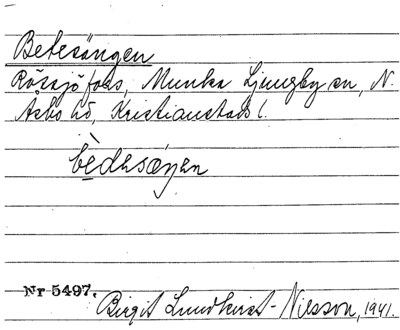 Betesängen
Rössjöfors, Munka Ljungby sn, N.
Asbo hd, Kristianstads l.
bèdesạŋen
Nr 5497.
Birgit Lundkvist-Nilsson, 1941.